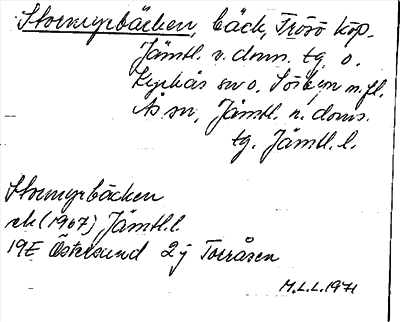 Stormyrbäcken, bäck, Frösö köp.
Jämtl. v. doms. tg. o.
Kyrkås sn o. Sörbyn m.fl.
Ås sn, Jämtl. n. doms.
tg. Jämtl. l.
Stormyrbäcken
ek (1967) Jämtl. l.
19E Östersund 2j Torråsen
M.L.L. 1971